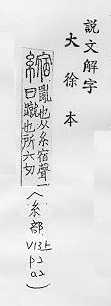 說文解字
大徐本
縮亂也从糸宿聲一
曰蹴也所六切
(糸部
V13上
p2
a2)